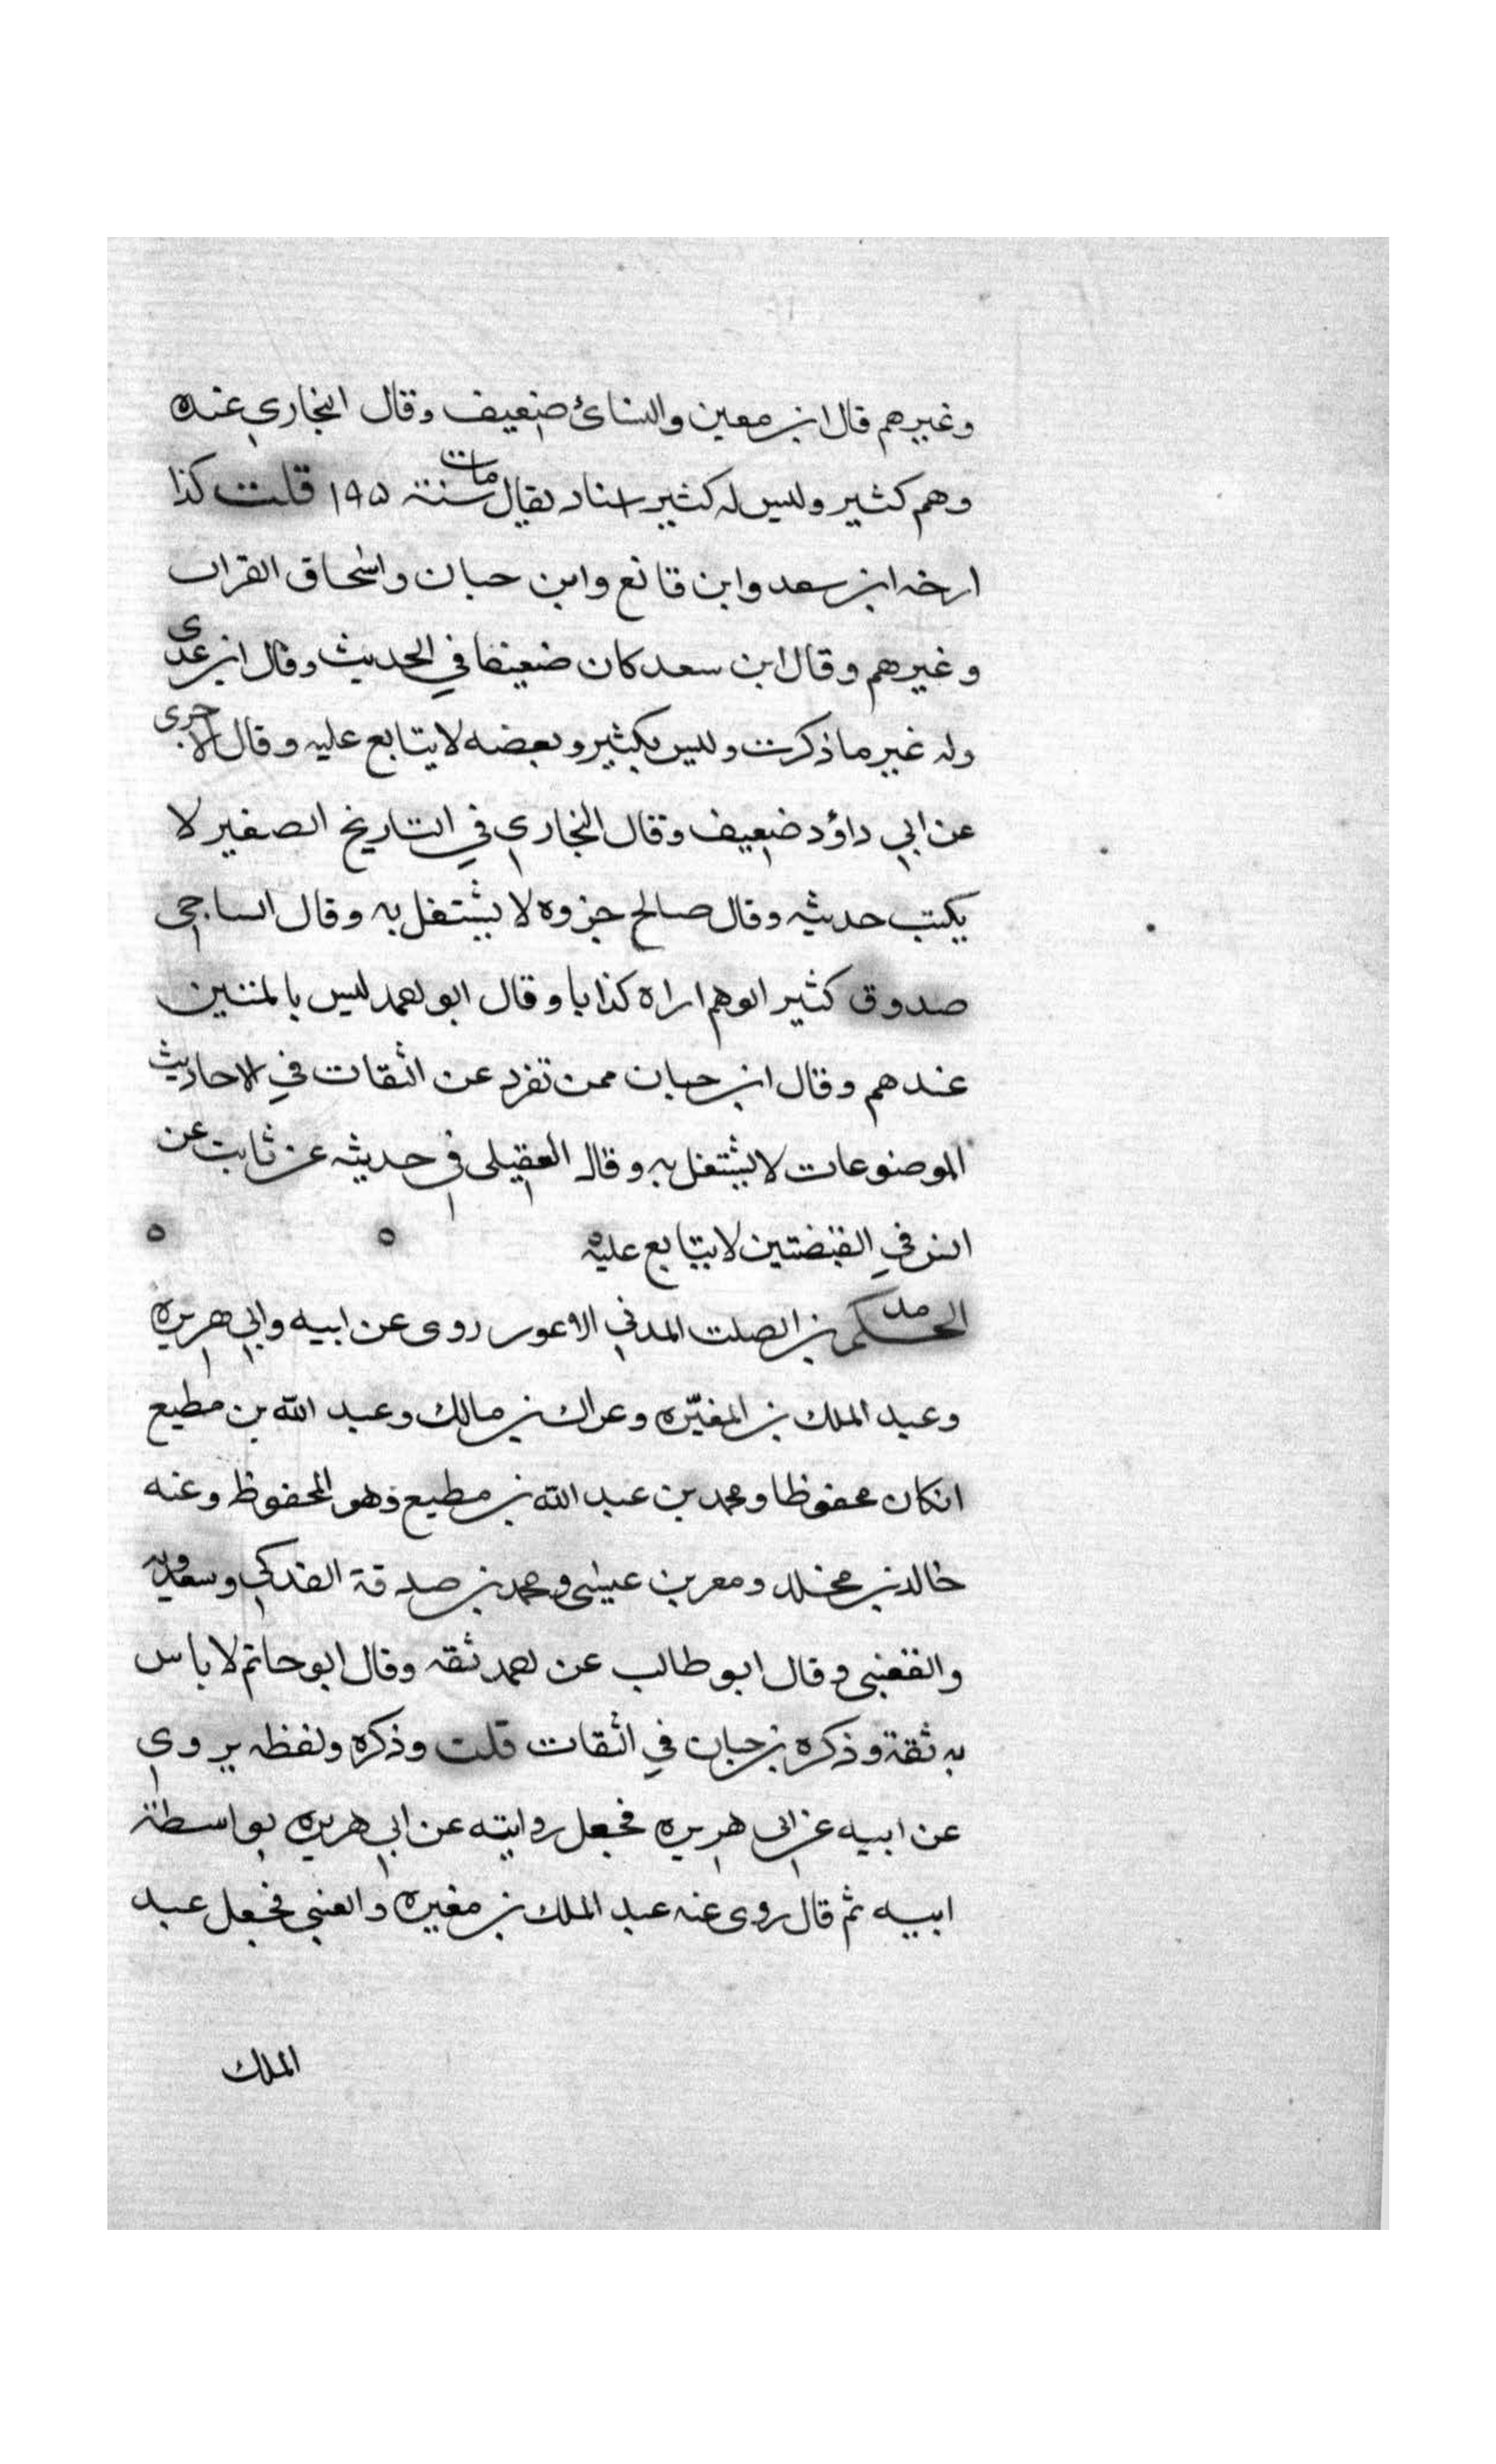 وغيرهم قال ابن معين والنسائ ضعيف وقال البخاري عنده
وهم كثير وليس له كثير اسناد يقال مات سنة ١٩٥ قلت كذا
ارخه ابن سعد وابن قانع وابن حبان واسحاق القراب
وغيرهم وقال ابن سعد كان ضعيفا في الحديث وقال ابن عدى
وله غير ما ذكرت وليس بكثير وبعضه لا يتابع عليه وقال الاجرى
عن ابي داؤد ضعيف وقال البخاري في التاريخ الصغير لا
يكتب حديثه وقال صالح جزره لا يشتغل به وقال الساجي
صدوق كثير الوهم اراه كذابا وقال ابو احمد ليس بالمتين
عندهم وقال ابن حبان ممن تفرد عن الثقات في الاحاديث
الموضوعات لا يشتغل به وقال العقيلى في حديثه عن ثابت عن
انس في القبضتين لا يتابع عليه
الحكم بن الصلت المدني الاعور روى عن ابيه وابي هريره
وعبد الملك بن المغيّره وعراك بن مالك وعبد الله بن مطيع
انكان محفوظا ومحمد بن عبد الله بن مطيع وهو المحفوظ وعنه
خالد بن مخلد ومعن بن عيسى ومحمد بن صدقة الفدكي وسعدويه
والقعنبي وقال ابو طالب عن احمد ثقه وقال ابو حاتم لا باس
به ثقة وذكره بن حبان في الثقات قلت وذكره ولفظه يروي
عن ابيه عن ابى هريره فجعل روايته عن ابي هريره بواسطة
ابيه ثم قال روى عنه عبد الملك بن مغيره والعنبي فجعل عبد
الملك